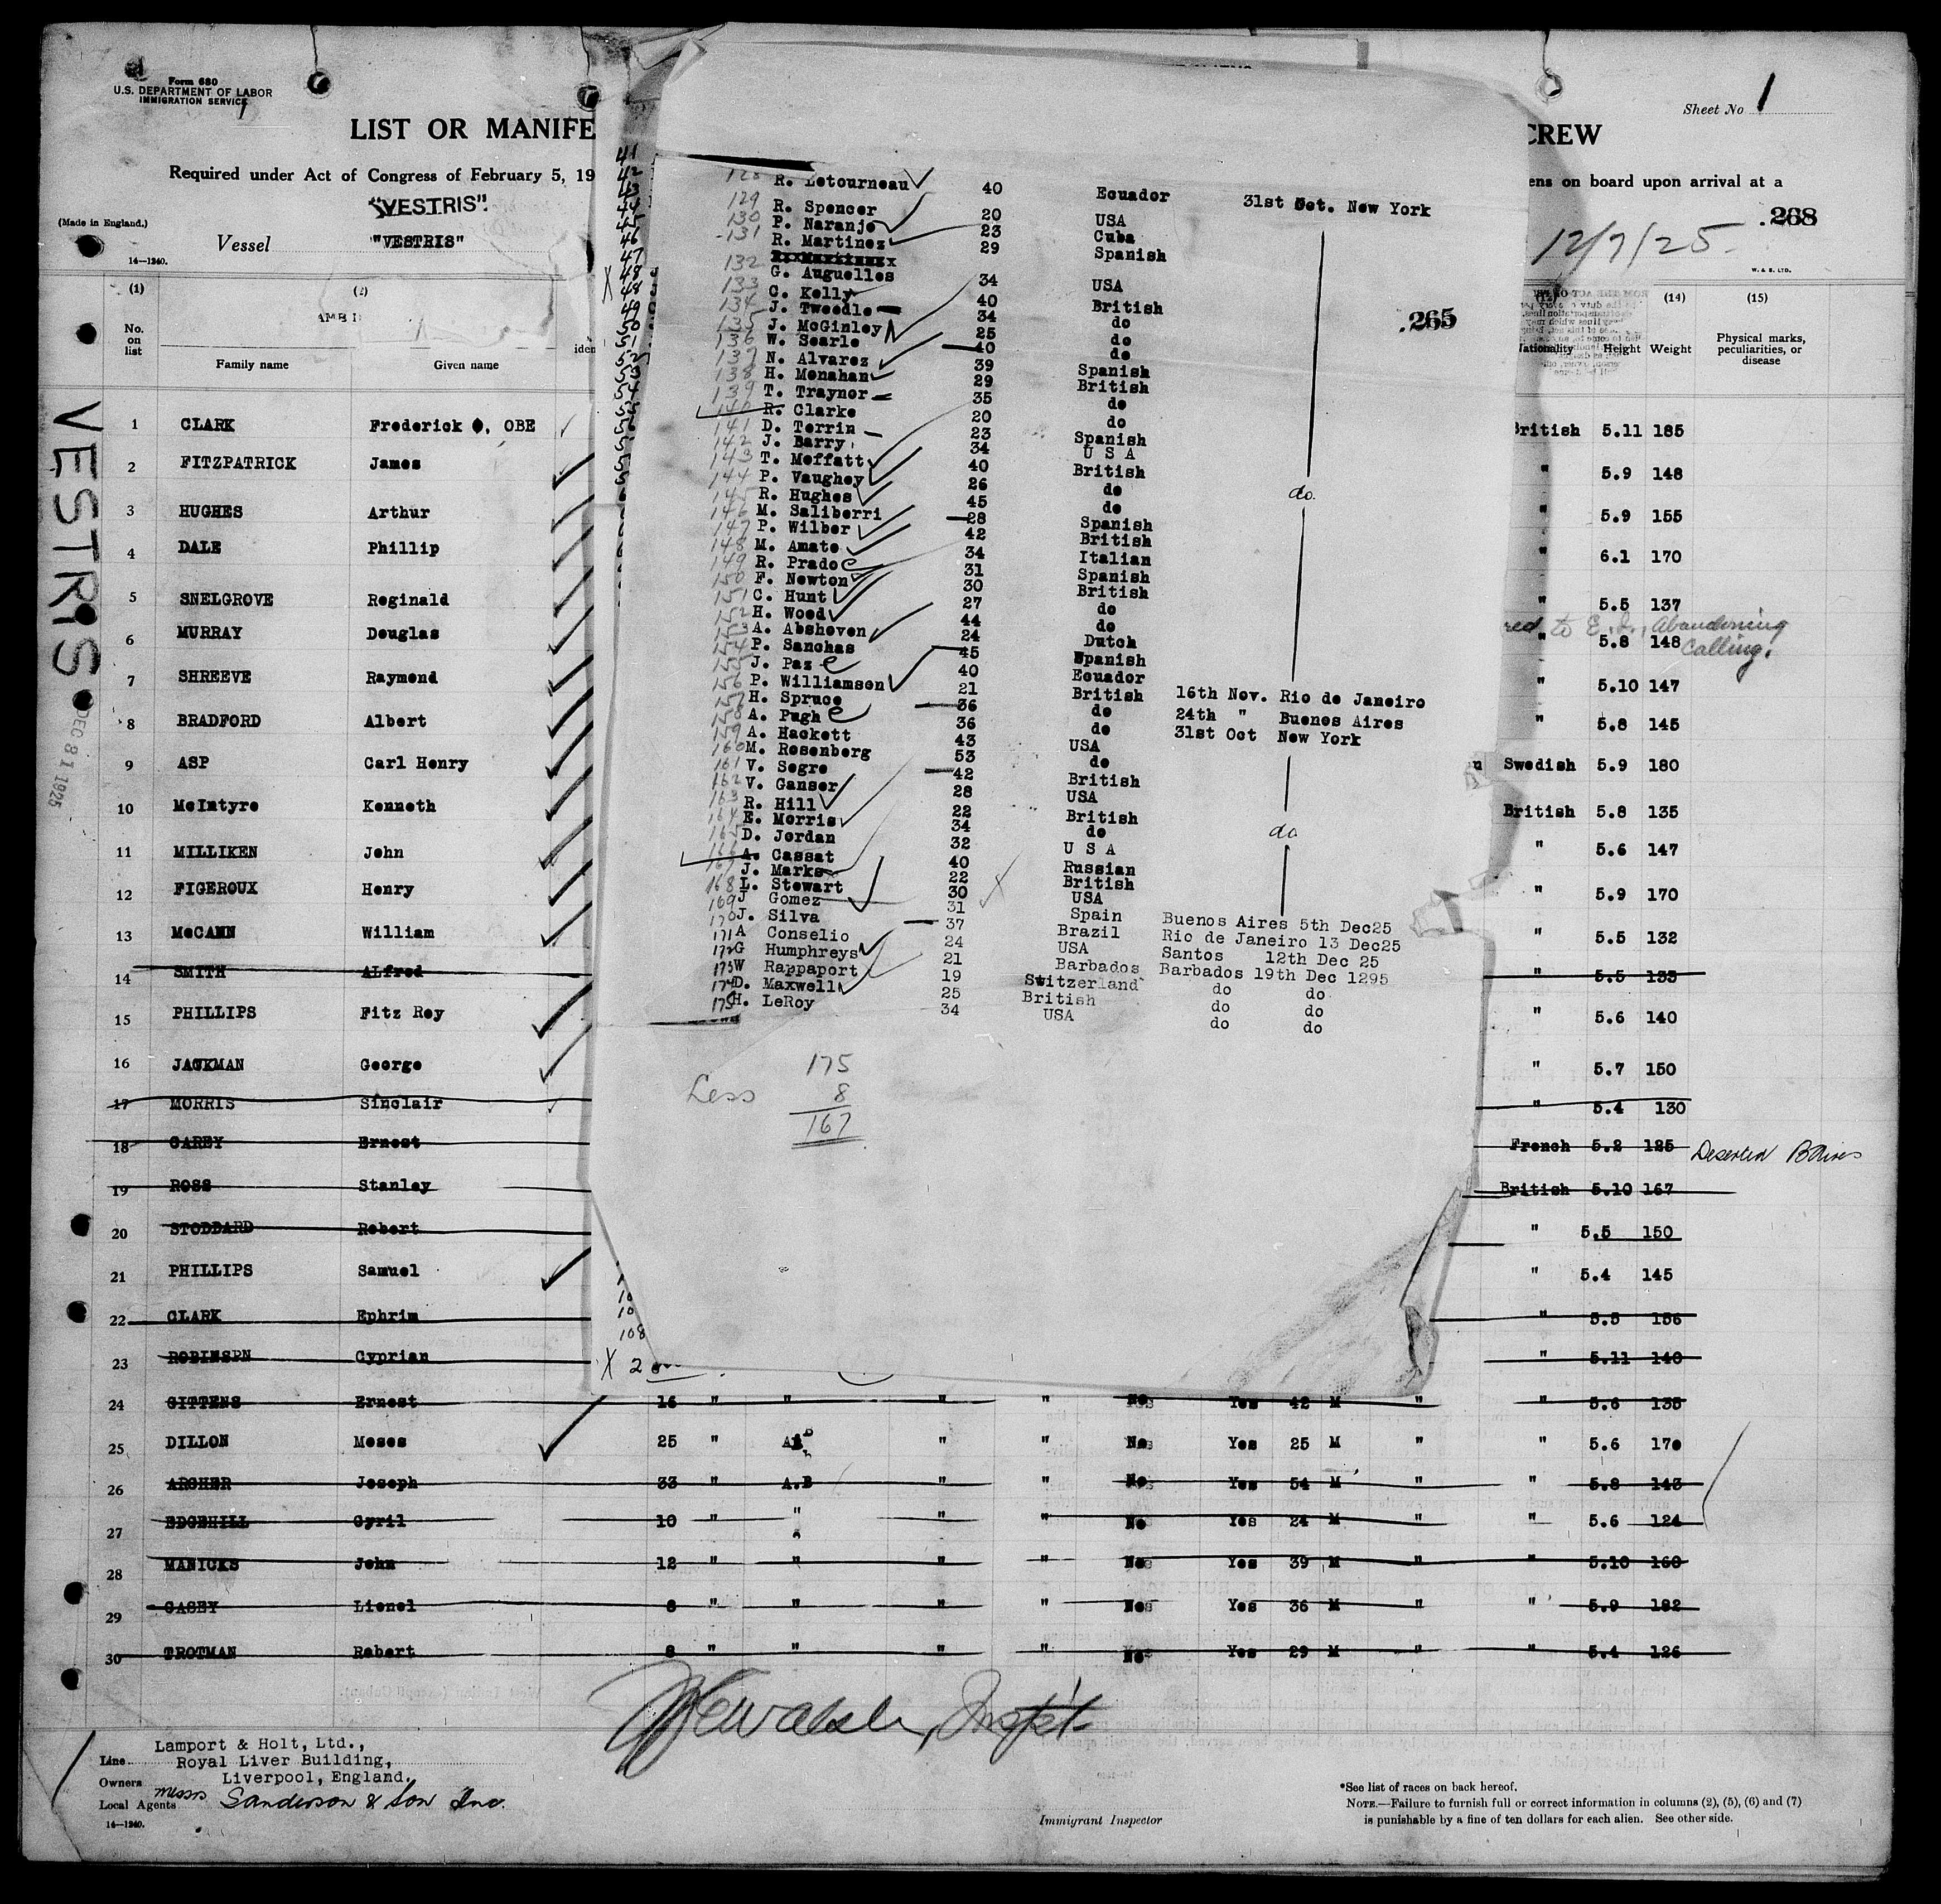 Form 680
U.S. DEPARTMENT OF LABOR
IMMIGRATION SERVICE
Sheet No 1
LIST OR MANIFE
CREW
Required under Act of Congress of February 5, 19
ens on board upon arrival at a
"VESTRIS".
(Made in England.)
Vessel "VESTRIS"
14—1240.
12/7/25
.268
W. & S. LTD.
(1) (2) (14) (15)
No. on list
Family name Given name
Nationality Height Weight
Physical marks, peculiarities, or disease
VESTRIS
DEC 31 1925
1 CLARK Frederick OBE British 5.11 185
2 FITZPATRICK James " 5.9 148
3 HUGHES Arthur " 5.9 155
4 DALE Phillip " 6.1 170
5 SNELGROVE Reginald " 5.5 137
red to E. I., Abandoning Calling.
6 MURRAY Douglas " 5.8 148
7 SHREEVE Raymond " 5.10 147
8 BRADFORD Albert " 5.8 145
9 ASP Carl Henry Swedish 5.9 180
10 McIntyre Kenneth British 5.8 135
11 MILLIKEN John " 5.6 147
12 FIGEROUX Henry " 5.9 170
13 McCANN William " 5.5 132
14 SMITH ALfred " 5.5 133
15 PHILLIPS Fitz Roy " 5.6 140
16 JACKMAN George " 5.7 150
17 MORRIS Sinclair " 5.4 130
18 CAREY Ernest French 5.2 125 Deserted BAires
19 ROSS Stanley British 5.10 167
20 STODDARD Robert " 5.5 150
21 PHILLIPS Samuel " 5.4 145
22 CLARK Ephrim " 5.5 156
23 ROBINSPN Cyprian " 5.11 140
24 GITTENS Ernest 16 " " " " No Yes 42 M " " 5.6 135
25 DILLON Moses 25 " AB " " No Yes 25 M " " 5.6 170
26 ARCHER Joseph 33 " A.B " " No Yes 54 M " " 5.8 143
27 EDGEHILL Cyril 10 " " " " No Yes 24 M " " 5.6 124
28 MANICKS John 12 " " " " No Yes 39 M " " 5.10 160
29 CASEY Lionel 8 " " " " No Yes 36 M " " 5.9 182
30 TROTMAN Robert 8 " " " " No Yes 29 M " " 5.4 126
41
42
43
44
45
46
47
X 48
48
49
50
51
52
53
54
55
108
X 2
128 R. Letourneau 40 Ecuador 31st Oct. New York
129 R. Spencer 20 USA
130 P. Naranjo 23 Cuba
131 R. Martinez 29 Spanish
132 G. Auguelles 34 USA
133 C. Kelly 40 British
134 J. Tweedle 34 do
135 J. McGinley 25 do
136 W. Searle 40 do
137 N. Alvarez 39 Spanish
138 H. Monahan 29 British
139 T. Traynor 35 do
140 R. Clarke 20 do
141 D. Terrin 23 Spanish
142 J. Barry 34 U S A
143 T. Moffatt 40 British
144 P. Vaughey 26 do do.
145 R. Hughes 45 do
146 M. Saliberri 28 Spanish
147 P. Wilber 42 British
148 M. Amato 34 Italian
149 R. Prado 31 Spanish
150 F. Newton 30 British
151 C. Hunt 27 do
152 H. Wood 44 do
153 A. Abshoven 24 Dutch
154 P. Sanchas 45 Spanish
155 J. Paz 40 Ecuador
156 P. Williamson 21 British 16th Nov. Rio de Janeiro
157 H. Spruce 36 do 24th " Buenos Aires
158 A. Pugh 36 do 31st Oct New York
159 A. Hackett 43 USA
160 M. Rosenberg 53 do
161 V. Segre 42 British
162 V. Ganser 28 USA
163 R. Hill 22 British
164 E. Morris 34 do do
165 D. Jordan 32 U S A
166 A. Cassat 40 Russian
167 J. Marks 22 British
168 L. Stewart 30 USA
169 J Gomez 31 Spain Buenos Aires 5th Dec25
170 J. Silva 37 Brazil Rio de Janeiro 13 Dec25
171 A Conselio 24 USA Santos 12th Dec 25
172 G Humphreys 21 Barbados Barbados 19th Dec 1295
173 W Rappaport 19 Switzerland do do
174 D. Maxwell 25 British do do
175 H. LeRoy 34 USA do do
.265
175
Less 8
167
Line Lamport & Holt, Ltd.,
Royal Liver Building,
Owners Liverpool, England.
Local Agents Messrs Sanderson & Son Inc.
14—1240.
Immigrant Inspector
*See list of races on back hereof.
NOTE.—Failure to furnish full or correct information in columns (2), (5), (6) and (7)
is punishable by a fine of ten dollars for each alien. See other side.